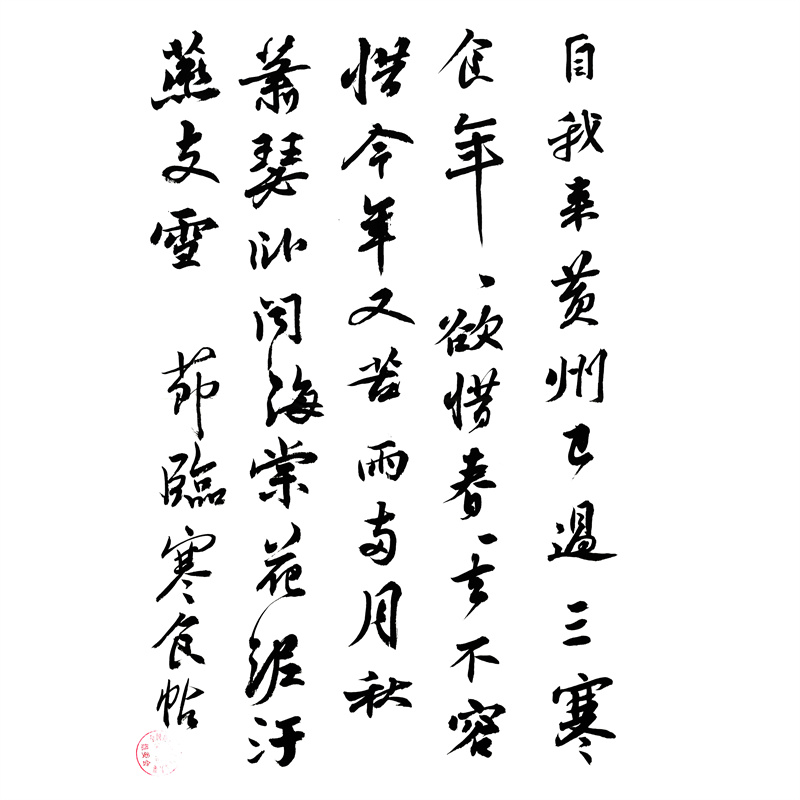 自我来黄州已過三寒
食年、欲惜春、去不容
惜今年又苦雨两月秋
蕭瑟卧闻海棠花泥汙
燕支雪 臨寒食帖